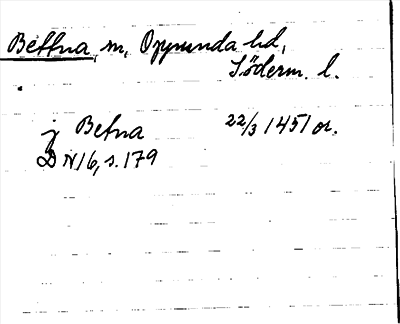 Bettna, sn, Oppunda hd,
Söderm. l.
j Betna 22/3 1451 or.
DN 16, s. 179